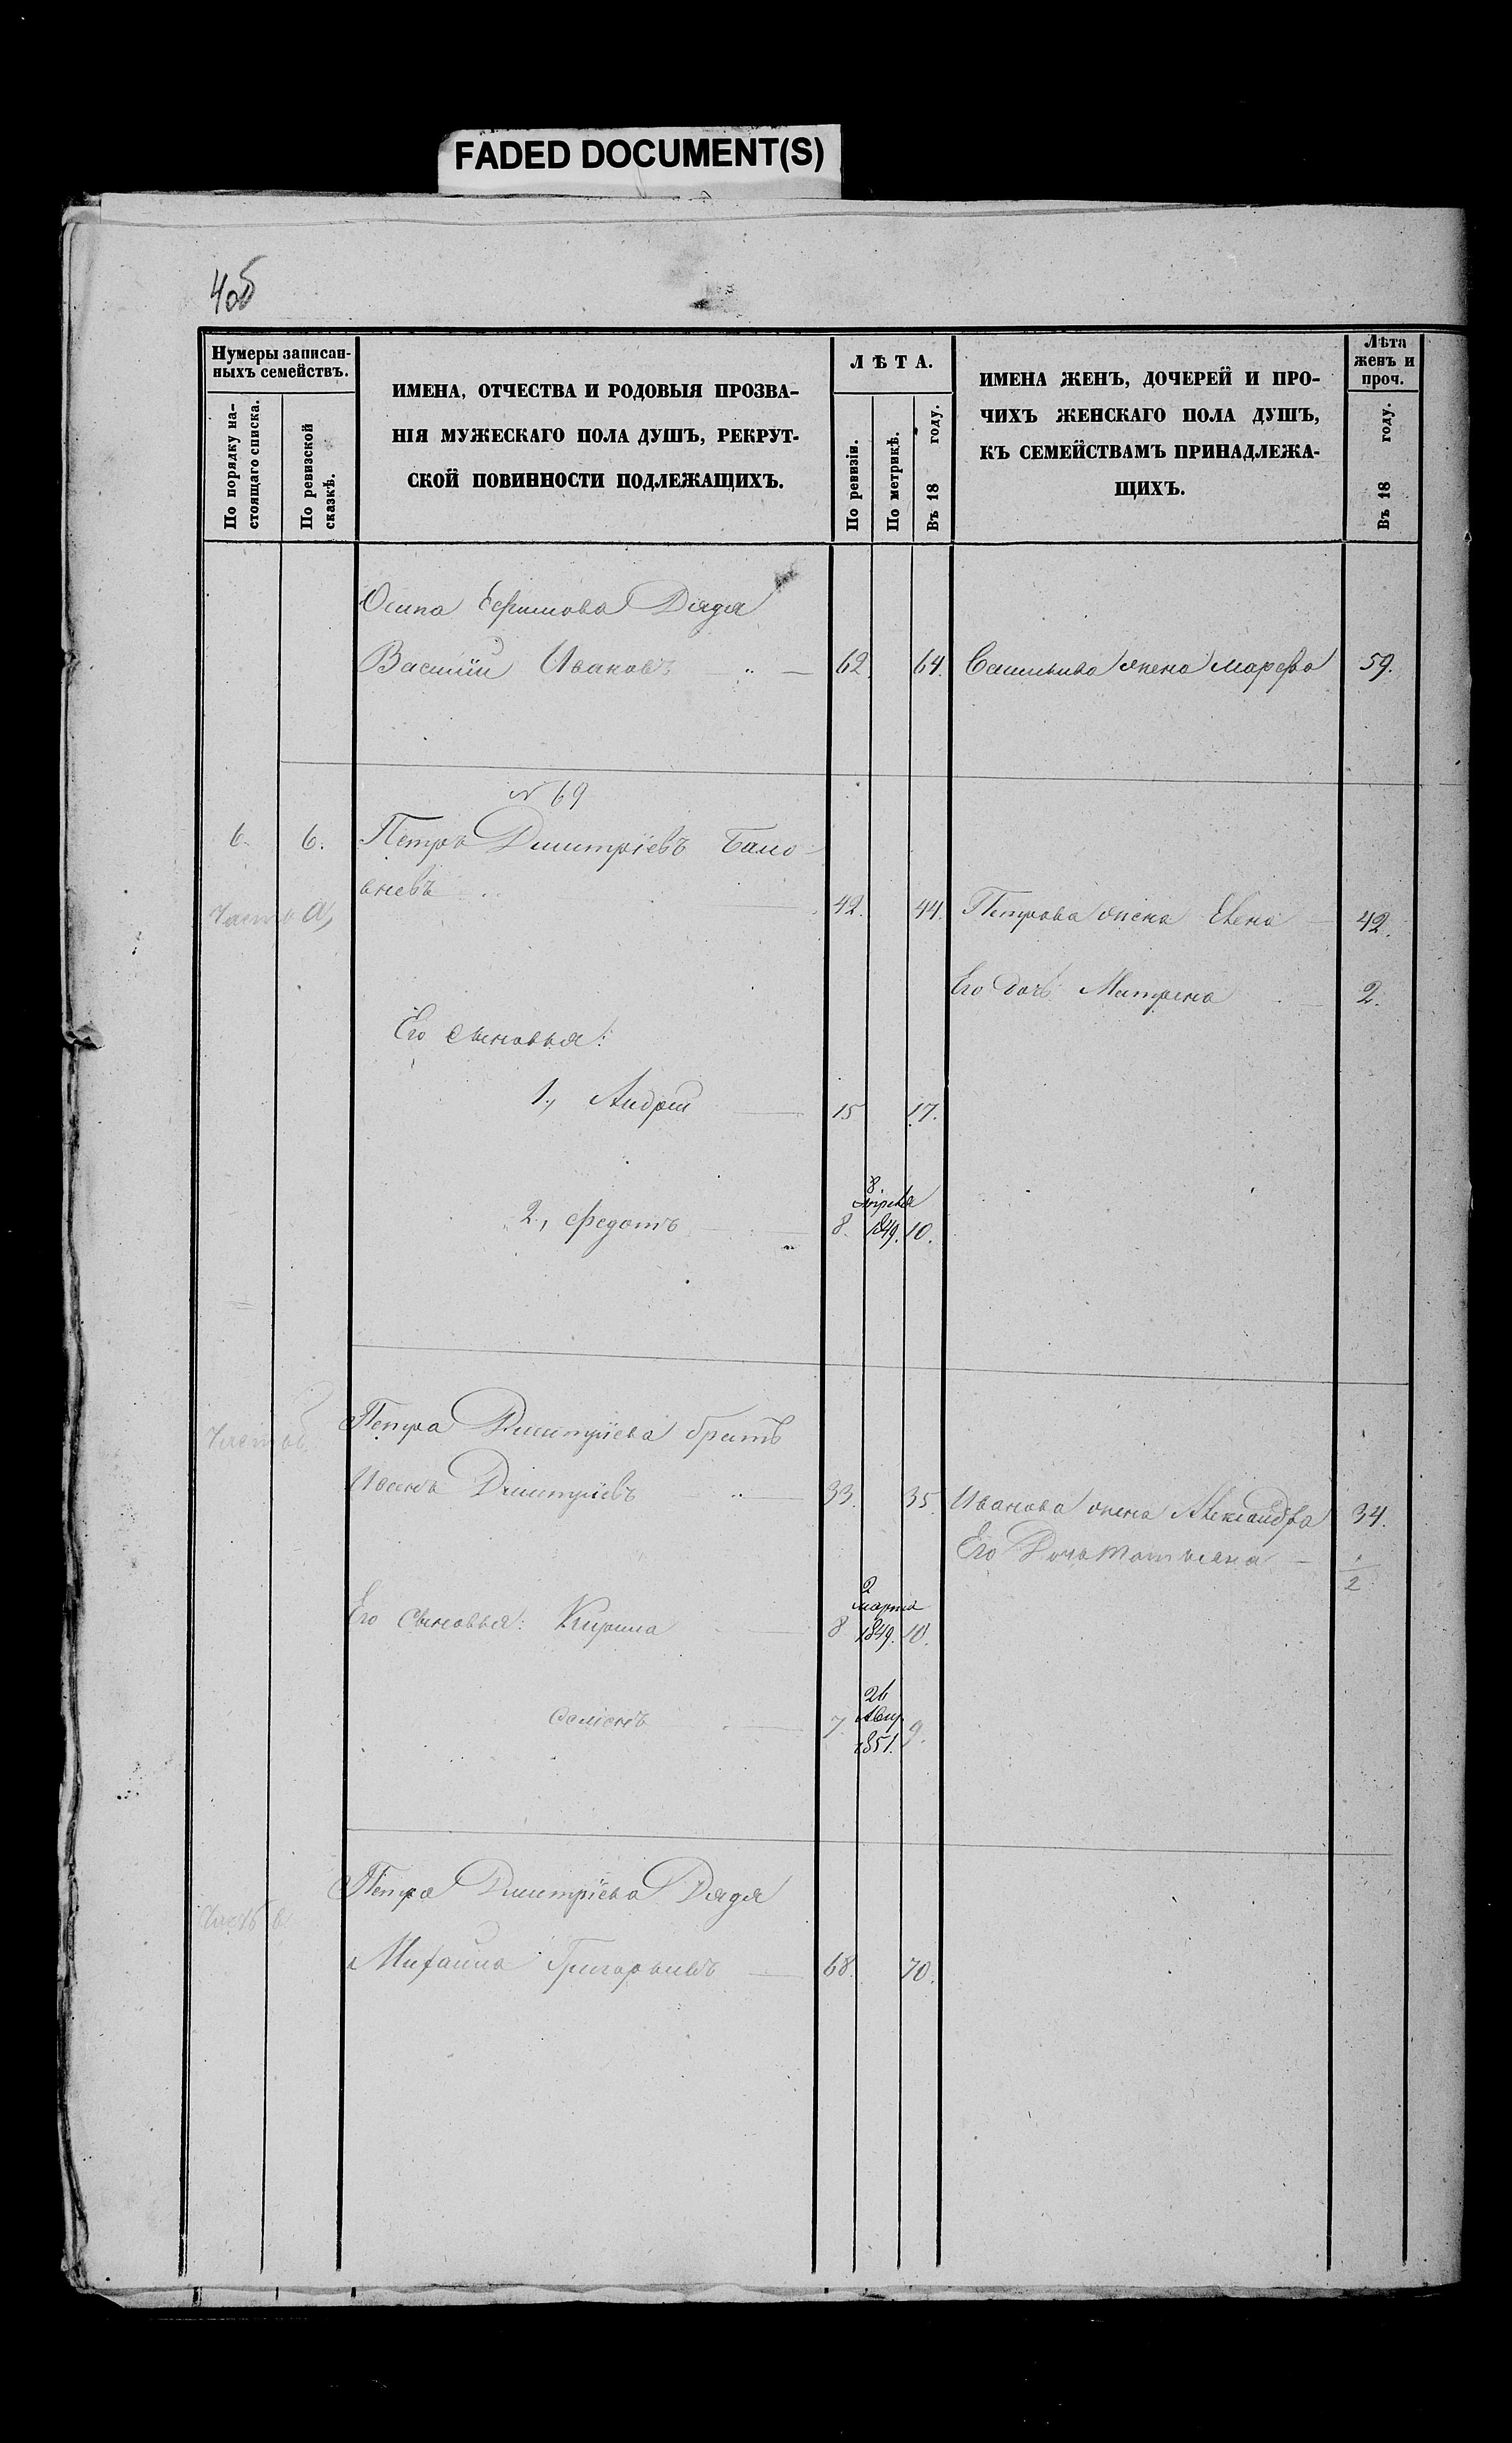 FADED DOCUMENT(S)
Нумеры записан-
ныхъ семействъ.
По порядку на-
стоящаго списка.
По ревизской
сказкѣ.
ИМЕНА, ОТЧЕСТВА И РОДОВЫЯ ПРОЗВА-
НІЯ МУЖЕСКАГО ПОЛА ДУШЪ, РЕКРУТ-
СКОЙ ПОВИННОСТИ ПОДЛЕЖАЩИХЪ.
ЛѢТА.
По ревизіи.
По метрикѣ.
Въ 18 году.
ИМЕНА ЖЕНЪ, ДОЧЕРЕЙ И ПРО-
ЧИХЪ ЖЕНСКАГО ПОЛА ДУШЪ,
КЪ СЕМЕЙСТВАМЪ ПРИНАДЛЕЖА-
ЩИХЪ.
Лѣта
женъ и
проч.
Въ 18 году.
Осипа Ефимова Дядя
Василій Ивановъ 62. 64. жена Марѳа 59.
N 69
6. 6. Петръ Дмитріевъ
42. 44. Петрова жена Елена 42.
Его дочь Матрена 2.
Его сыновья:
1., Андрей 15 17.
8
Апреля
2., Федотъ 8. 1849. 10.
Петра Дмитріева братъ
Иванъ Дмитріевъ 33. 35. Иванова жена Александра 34.
Его Дочь Татьяна
2
2
марта
Его Сыновья: Кирила 8 1849. 10.
26
7. 9.
1851.
Петра Дмитріева Дядя
Михаила Григорьевъ 68. 70.